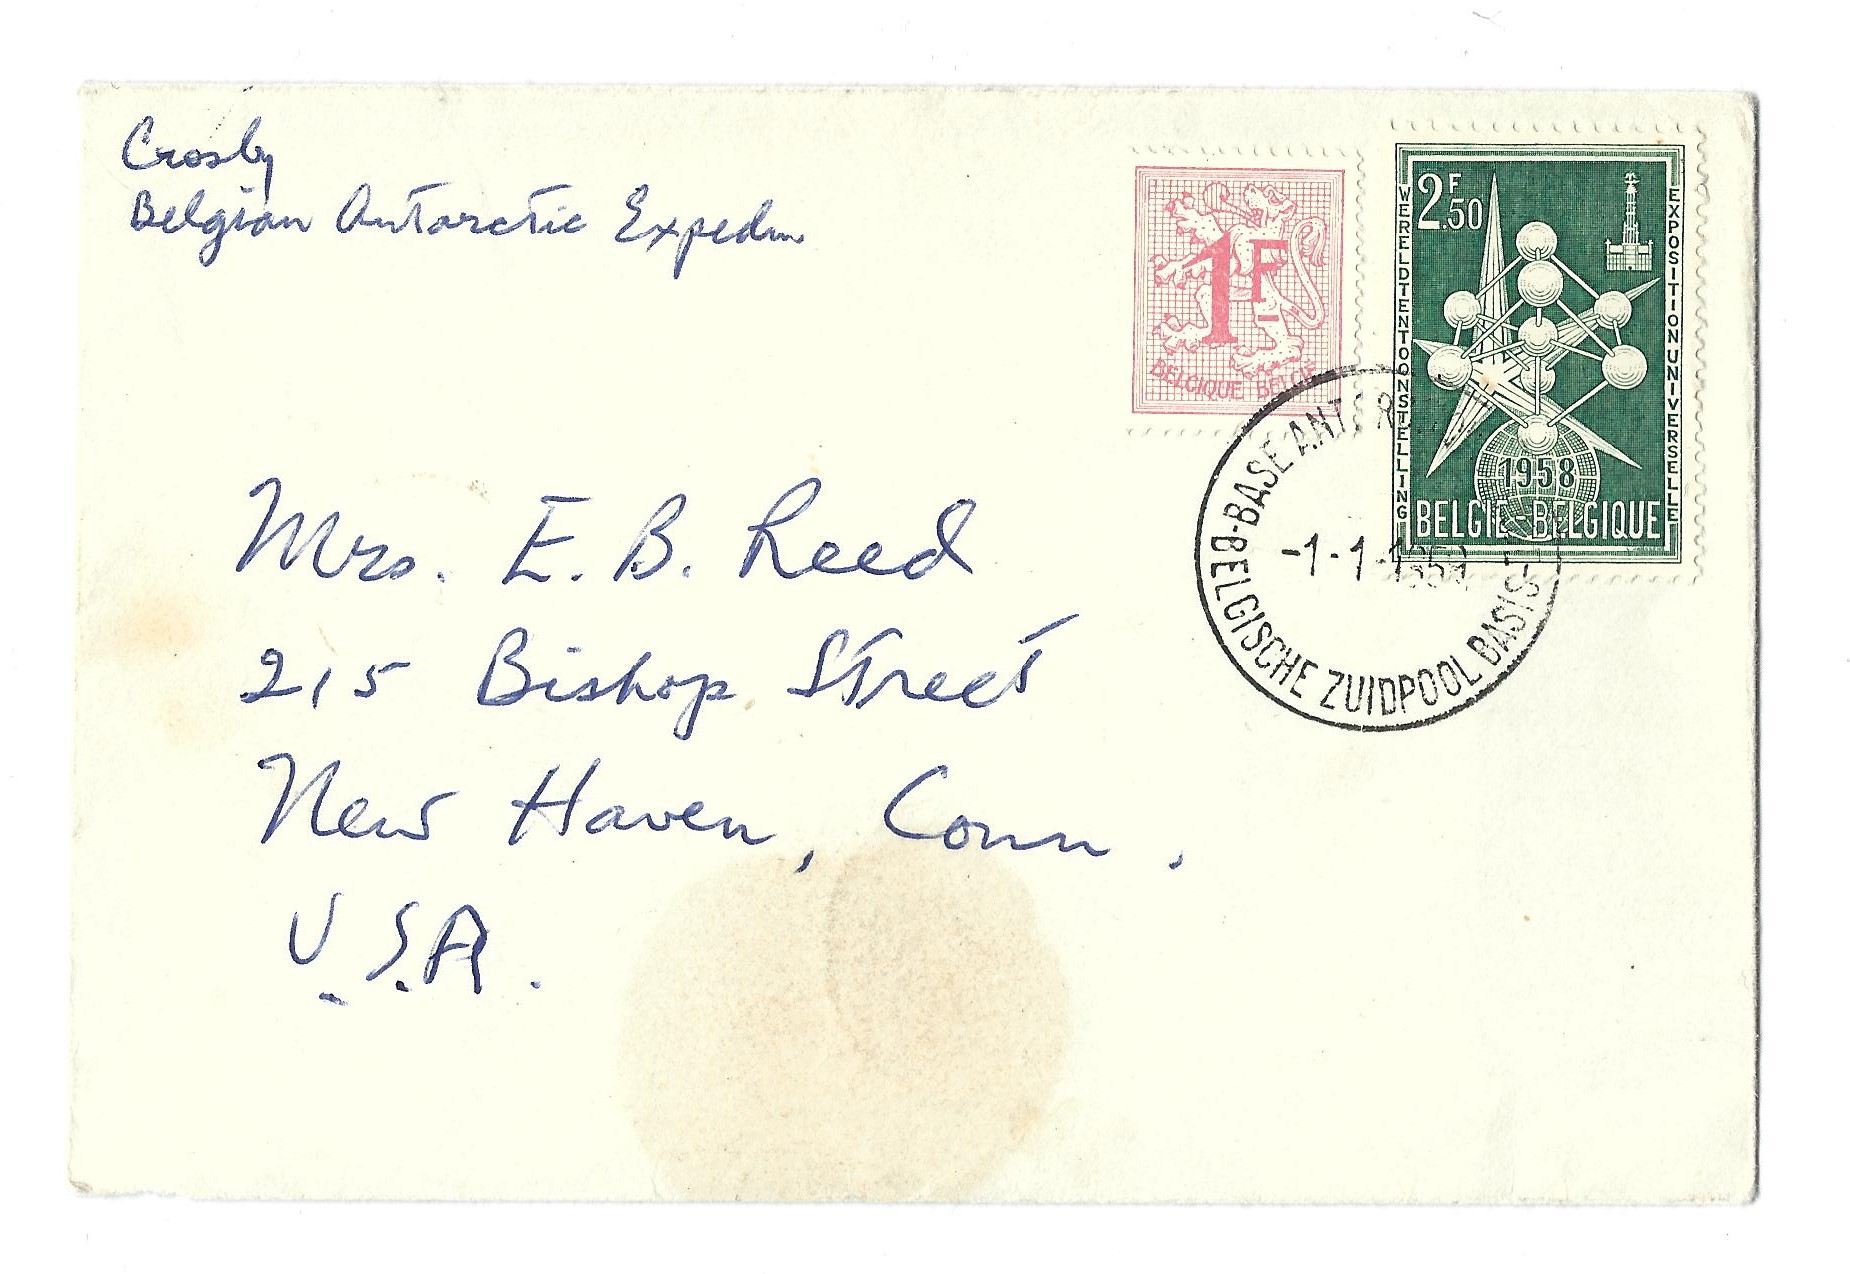 Crosby
Belgian Antarctic Expedn
1F
BELGIQUE BELGIË
2F.50
WERELDTENTOONSTELLING
EXPOSITION UNIVERSELLE
1958
BELGIE-BELGIQUE
BASE
-1-1-195
BELGISCHE ZUIDPOOL BASIS-
Mrs. E. B. Reed
215 Bishop Street
New Haven, Conn.
U.S.A.